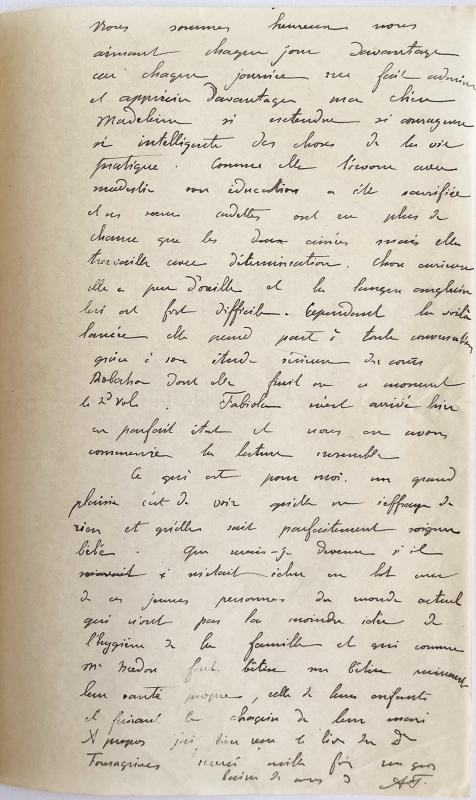 Nous sommes heureux nous
aimant chaque jour davantage
car chaque journée me fait admirer
et apprécier davantage ma chère
Madeleine si entendue si courageuse
si intelligente des choses de la vie
pratique. Comme elle l'avoue avec
modestie son éducation a été sacrifiée
et ses sœurs cadettes ont eu plus de
chance que les deux ainées mais elle
travaille avec détermination. Chose curieuse
elle a peu d'oreille et la langue anglaise
lui est fort difficile. Cependant la voilà
lancée elle prend part à toute conversation
grâce à son étude sérieuse du cours
Robertson dont elle finit en ce moment
le 2d vol. Fabiola m'est arrivé bien
en parfait état et nous en avons
commencé la lecture ensemble
Ce qui est pour moi un grand
plaisir c'est de voir qu'elle ne s'effraye de
rien et qu'elle sait parfaitement soigner
bébé. Que serais-je devenu si il
m'était échu en lot une
de ces jeunes personnes du monde actuel
qui n'ont pas la moindre idée de
l'hygiène de la famille et qui comme
Me font bêtise sur bêtise ruinant
leur santé propre, celle de leurs enfants
et faisant le chagrin de leur mari
A propos j'ai bien reçu le livre du Dr
merci mille fois un gros
baiser de nous 3 AF.